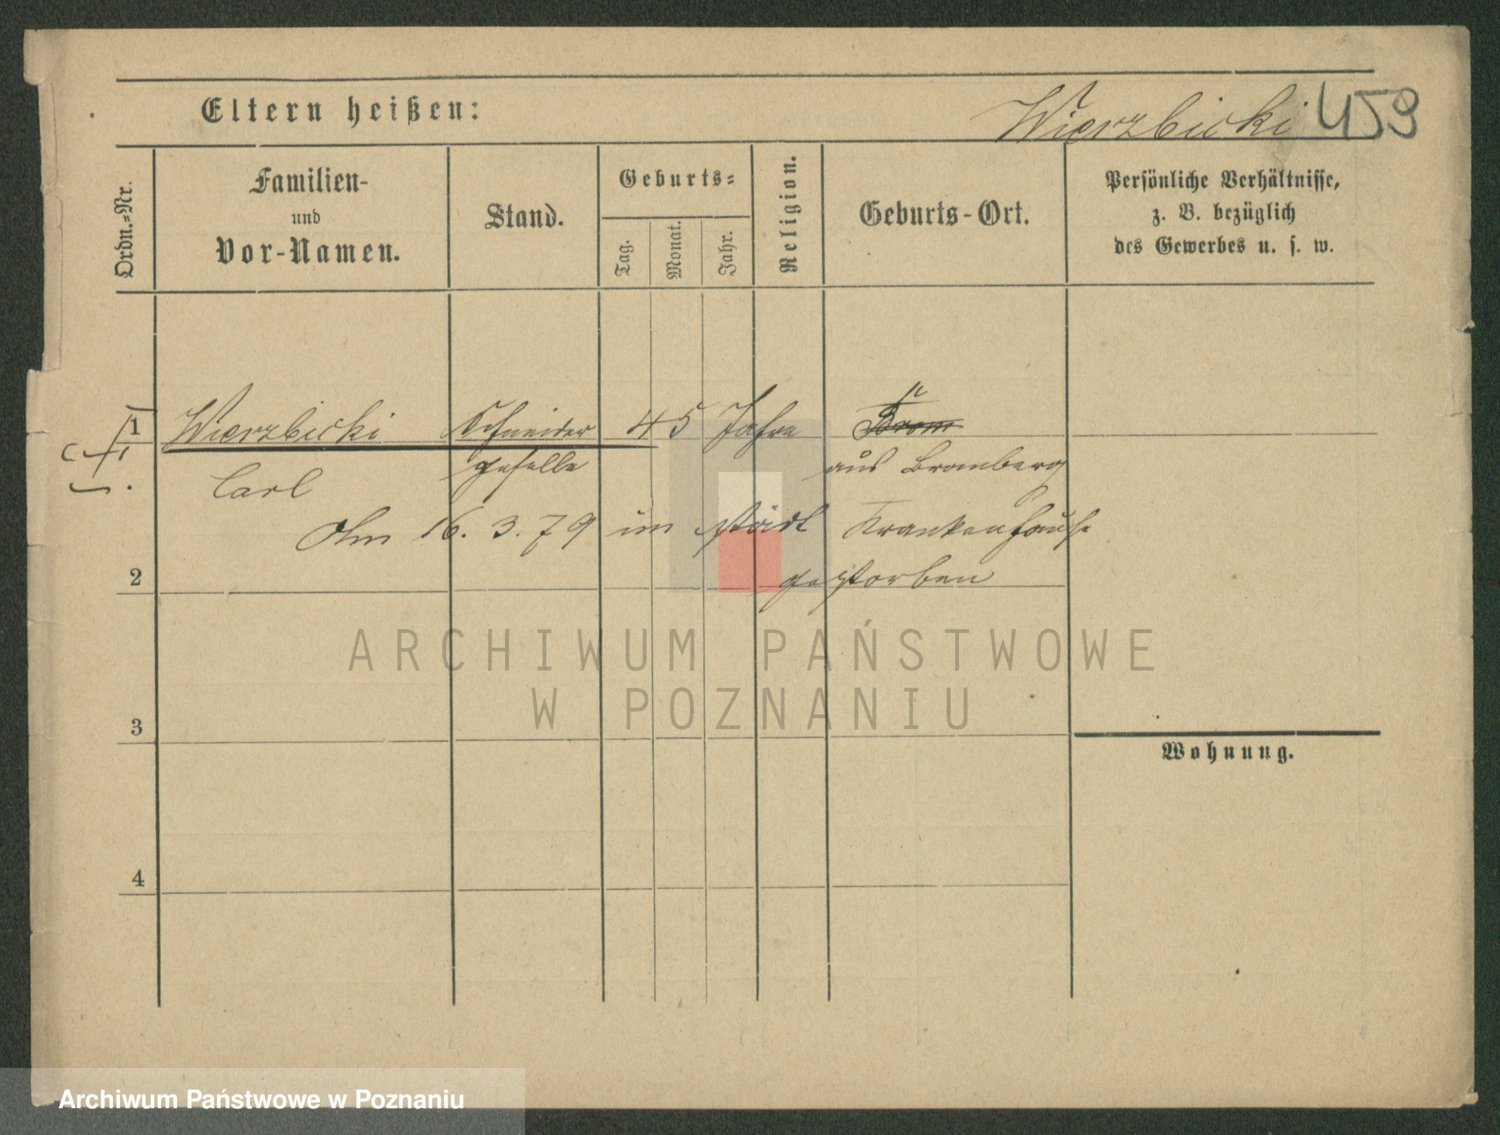 Eltern heißen:
Wierzbicki 459
Ordn.-Nr.
Familien-
und
Vor-Namen.
Stand.
Geburts-
Tag.
Monat.
Jahr.
Religion.
Geburts-Ort.
Persönliche Verhältnisse,
z. B. bezüglich
des Gewerbes u. s. w.
1 Wierzbicki Schneider 45 Jahre Brom
Carl geselle aus Bromberg
Am 16. 3. 79 im städt Krankenhause
gestorben
2
ARCHIWUM PAŃSTWOWE
W POZNANIU
3
Wohnung.
4
Archiwum Państwowe w Poznaniu